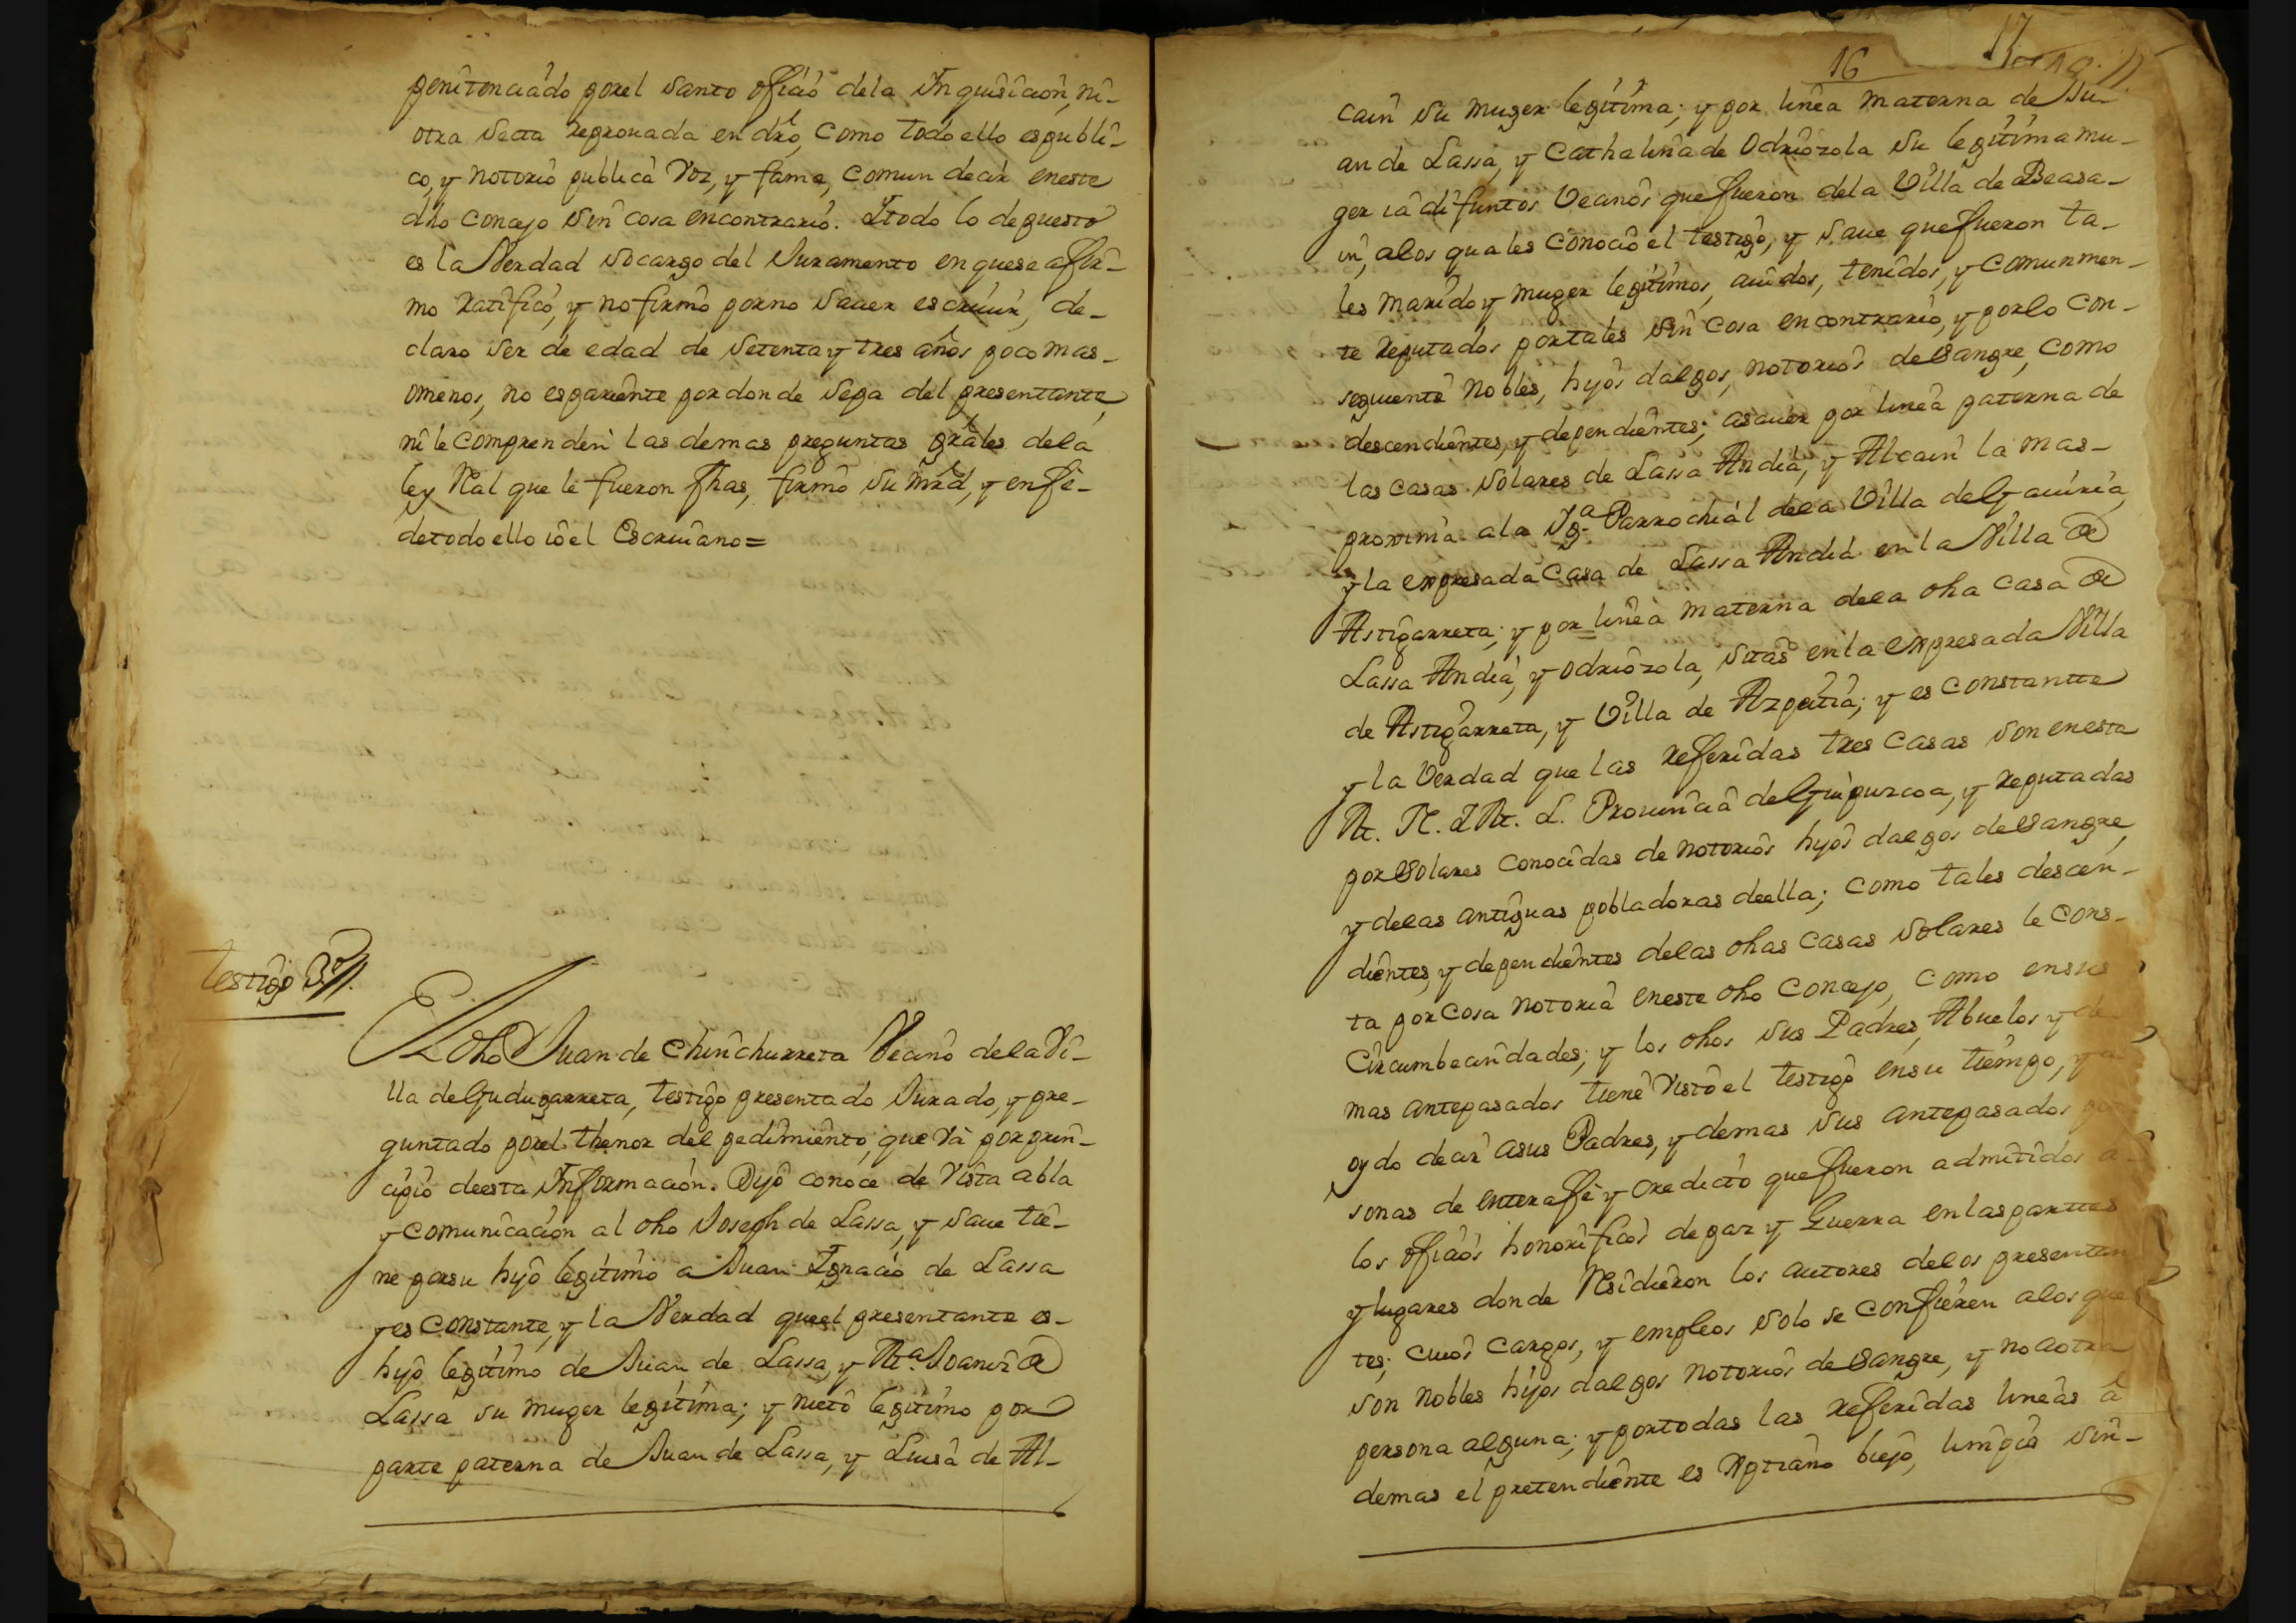 penitenciado porel Santo oficio dela Inquisicion, ni-
otra Secta reprovada en dro, como todo ello es publi-
co, y notorio publica voz, y fama, comun decir eneste
dho Concejo Sin cosa encontrario. Y todo lo depuesto
es la Verdad So cargo del Juramento en quese afir-
mo ratifico, y no firmo porno Saver escriuir, de-
claro Ser de edad de Setenta y tres años poco mas-
omenos, no espariente por donde Sepa del presentante,
ni le comprenden las demas preguntas grâles dela
ley Real que le fueron fhas, firmo Su mrd, y en fe-
detodo ello io el Escriuano=
Testigo 3º//.
El dho Juan de Chinchurreta Vecino dela Vi-
lla de Gudugarreta, testigo presentado Jurado, y pre-
guntado porel thenor del pedimiento, que và por prin-
cipio deesta Informacion. Dijo conoce de Vista abla
y comunicacion al dho Joseph de Lassa, y Save tie-
ne porsu hijo legitimo a Juan Ignacio de Lassa
y es constante, y la Verdad queel presentante es-
hijo legitimo de Juan de Lassa, y Mª. Joaniz de
Lassa su muger legitima; y nieto legitimo por
parte paterna de Juan de Lassa, y Luisa de Al-
16
17
cain Su muger legitima; y por linea materna de Ju-
an de Lassa, y Cathalina de Odriozola Su legitima mu-
ger ia difuntos Vecinos que fueron dela Villa de Beasa-
in, alos quales conocio el testigo, y Save que fueron ta-
les marido y muger legitimos, auidos, tenidos, y comunmen-
te reputados portales Sin cosa encontrario, y porlo con-
seguiente nobles, hijos dalgos, notorios desangre, como
descendientes, y dependientes; asauer por linea paterna de
las casas Solares de Lassa Andia, y Alcain la mas-
proxima ala Igª. Parrochial dela Villa de Gauiria,
y la expresada casa de Lassa Andia en la Villa de
Astigarreta; y por linea materna dela dha casa de
Lassa Andia, y Odriozola, sitas en la expresada Villa
de Astigarreta, y Villa de Azpeitia; y es constante
y la Verdad que las referidas tres casas Son enesta
M. N. Y M. L. Prouincia de Guipuzcoa, y reputadas
por Solares conocidas de notorios hijos dalgos desangre,
y delas antiguas pobladoras deella; como tales descen-
dientes, y dependientes delas dhas casas Solares le cons-
ta por cosa notoria eneste dho Concejo, como ensus
Circumbecindades; y los dhos Sus Padres, Abuelos y de
mas antepasados tiene Visto el testigo ensu tiempo, y a
oydo decir asus Padres, y demas Sus antepasados
sonas de entera fè y credicto que fueron admitidos a
los oficios honorificos depaz y Guerra enlas parttes
y lugares donde Residieron los autores delos presentan
tes; cuios cargos, y empleos solo se confieren alos que
Son nobles hijos dalgos notorios desangre, y no aotra
persona alguna; y portodas las referidas lineas â
demas el pretendiente es Xptiano biejo, limpio Sin-